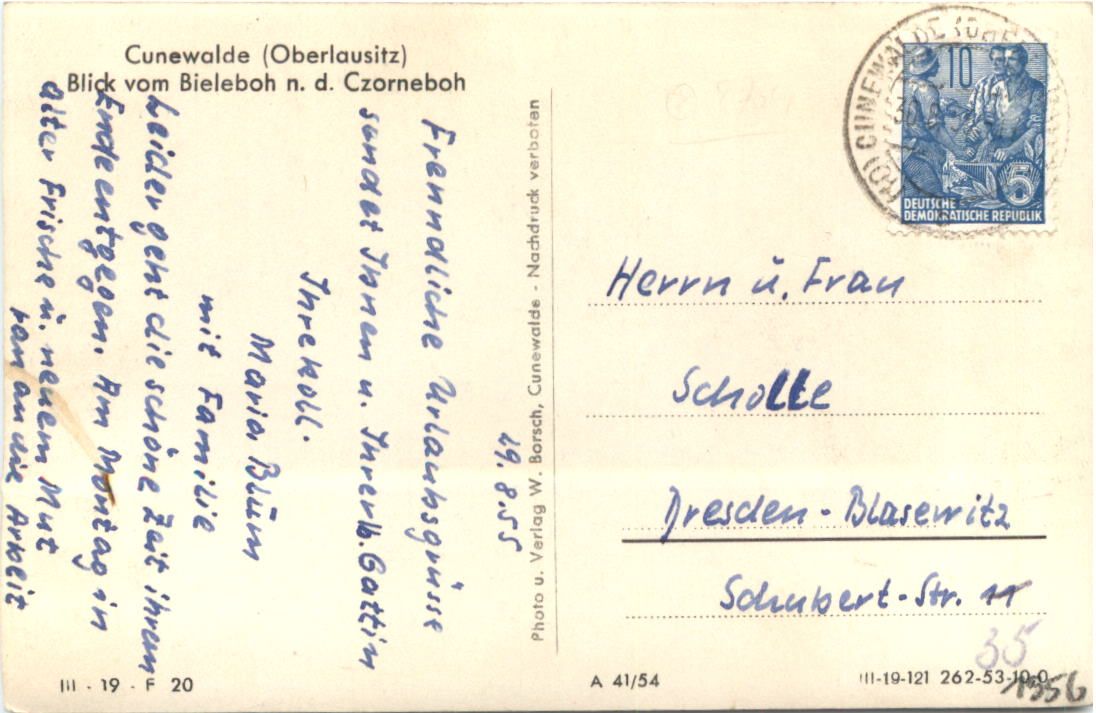 Cunewalde (Oberlausitz)
Blick vom Bieleboh n. d. Czorneboh
29.8.55
Freundliche Urlaubsgrüsse
sendet Ihnen u. Ihrer lb. Gattin
Ihre Koll.
Maria Blüm
mit Familie
Leider geht die schöne Zeit ihrem
Ende entgegen Am Montag in
alter Frische u. neuem Mut
ran an die Arbeit
Photo u. Verlag W. Borsch, Cunewalde - Nachdruck verboten
CUNEWALDE
10
5
DEUTSCHE
DEMOKRATISCHE REPUBLIK
Herrn u. Frau
Scholle
Dresden-Blasewitz
Schubert-Str. 11
35
1956
III - 19 - F 20
A 41/54
III-19-121 262-53-10,0